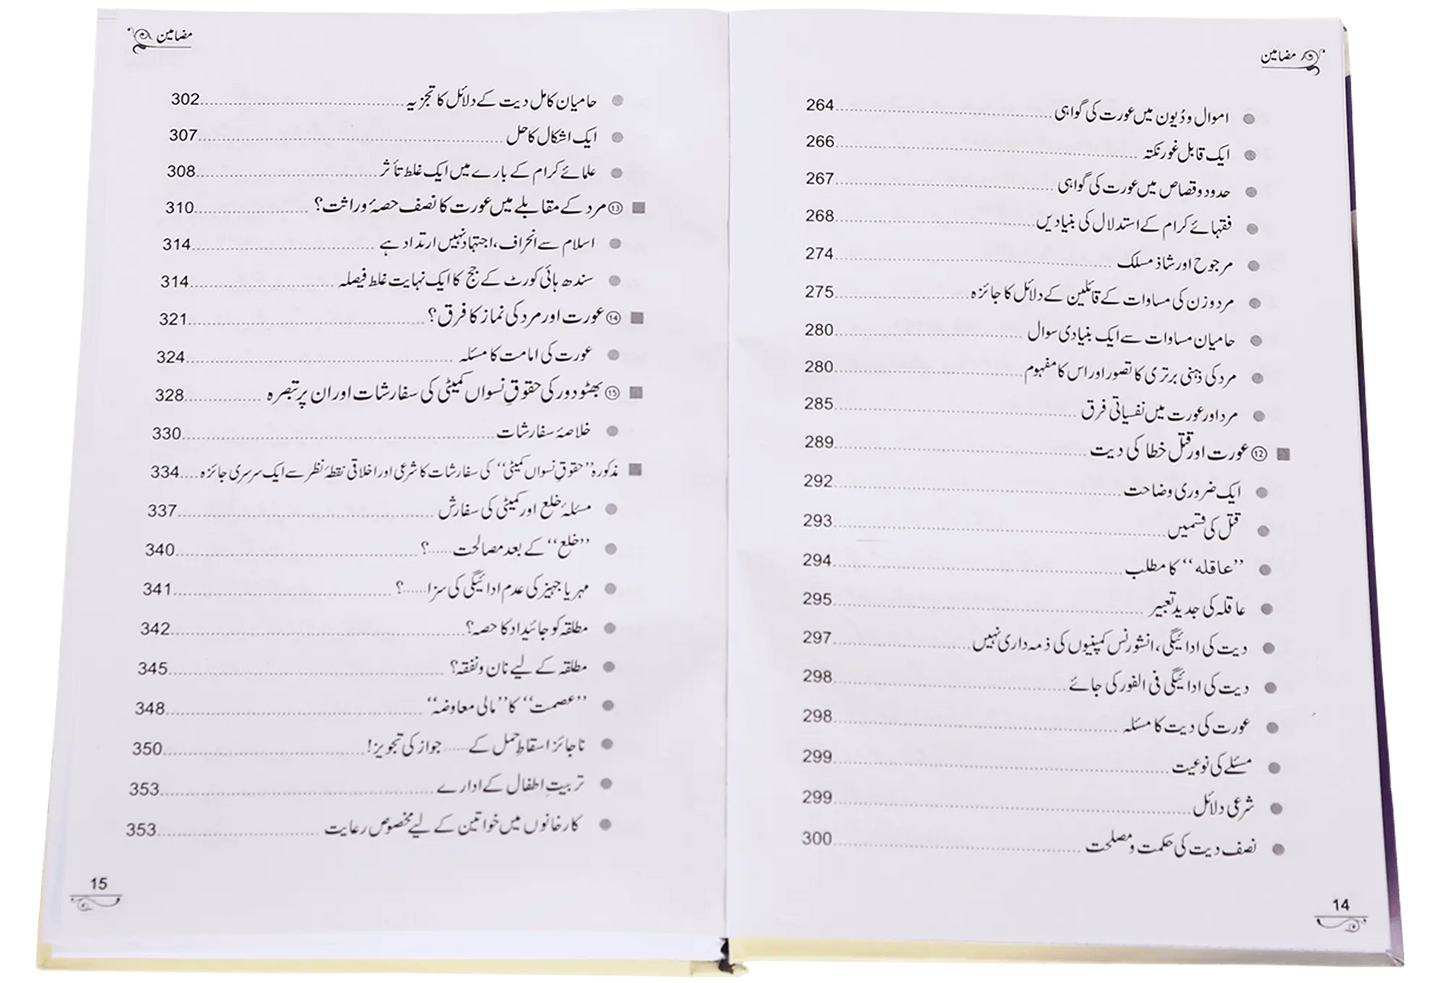 مضامین
اموال و دُیون میں عورت کی گواہی ........ 264
ایک قابل غور نکتہ ........ 266
حدود و قصاص میں عورت کی گواہی ........ 267
فقہائے کرام کے استدلال کی بنیادیں ........ 268
مرجوح اور شاذ مسلک ........ 274
مرد و زن کی مساوات کے قائلین کے دلائل کا جائزہ ........ 275
حامیان مساوات سے ایک بنیادی سوال ........ 280
مرد کی ذہنی برتری کا تصور اور اس کا مفہوم ........ 280
مرد اور عورت میں نفسیاتی فرق ........ 285
⑫ عورت اور قتل خطا کی دیت ........ 289
ایک ضروری وضاحت ........ 292
قتل کی قسمیں ........ 293
’’عاقلہ‘‘ کا مطلب ........ 294
عاقلہ کی جدید تعبیر ........ 295
دیت کی ادائیگی، انشورنس کمپنیوں کی ذمہ داری نہیں ........ 297
دیت کی ادائیگی فی الفور کی جائے ........ 298
عورت کی دیت کا مسئلہ ........ 298
مسئلے کی نوعیت ........ 299
شرعی دلائل ........ 299
نصف دیت کی حکمت و مصلحت ........ 300
14
مضامین
حامیان کامل دیت کے دلائل کا تجزیہ ........ 302
ایک اشکال کا حل ........ 307
علمائے کرام کے بارے میں ایک غلط تأثر ........ 308
⑬ مرد کے مقابلے میں عورت کا نصف حصۂ وراثت؟ ........ 310
اسلام سے انحراف، اجتہاد نہیں ارتداد ہے ........ 314
سندھ ہائی کورٹ کے جج کا ایک نہایت غلط فیصلہ ........ 314
⑭ عورت اور مرد کی نماز کا فرق؟ ........ 321
عورت کی امامت کا مسئلہ ........ 324
⑮ بھٹو دور کی حقوقِ نسواں کمیٹی کی سفارشات اور ان پر تبصرہ ........ 328
خلاصۂ سفارشات ........ 330
مذکورہ ’’حقوقِ نسواں کمیٹی‘‘ کی سفارشات کا شرعی اور اخلاقی نقطۂ نظر سے ایک سرسری جائزہ .... 334
مسئلۂ خلع اور کمیٹی کی سفارش ........ 337
’’خلع‘‘ کے بعد مصالحت ......؟ ........ 340
مہر یا جہیز کی عدم ادائیگی کی سزا ......؟ ........ 341
مطلقہ کو جائیداد کا حصہ؟ ........ 342
مطلقہ کے لیے نان و نفقہ؟ ........ 345
’’عصمت‘‘ کا ’’مالی معاوضہ‘‘ ........ 348
ناجائز اسقاطِ حمل کے ...... جواز کی تجویز! ........ 350
تربیتِ اطفال کے ادارے ........ 353
کارخانوں میں خواتین کے لیے مخصوص رعایت ........ 353
15